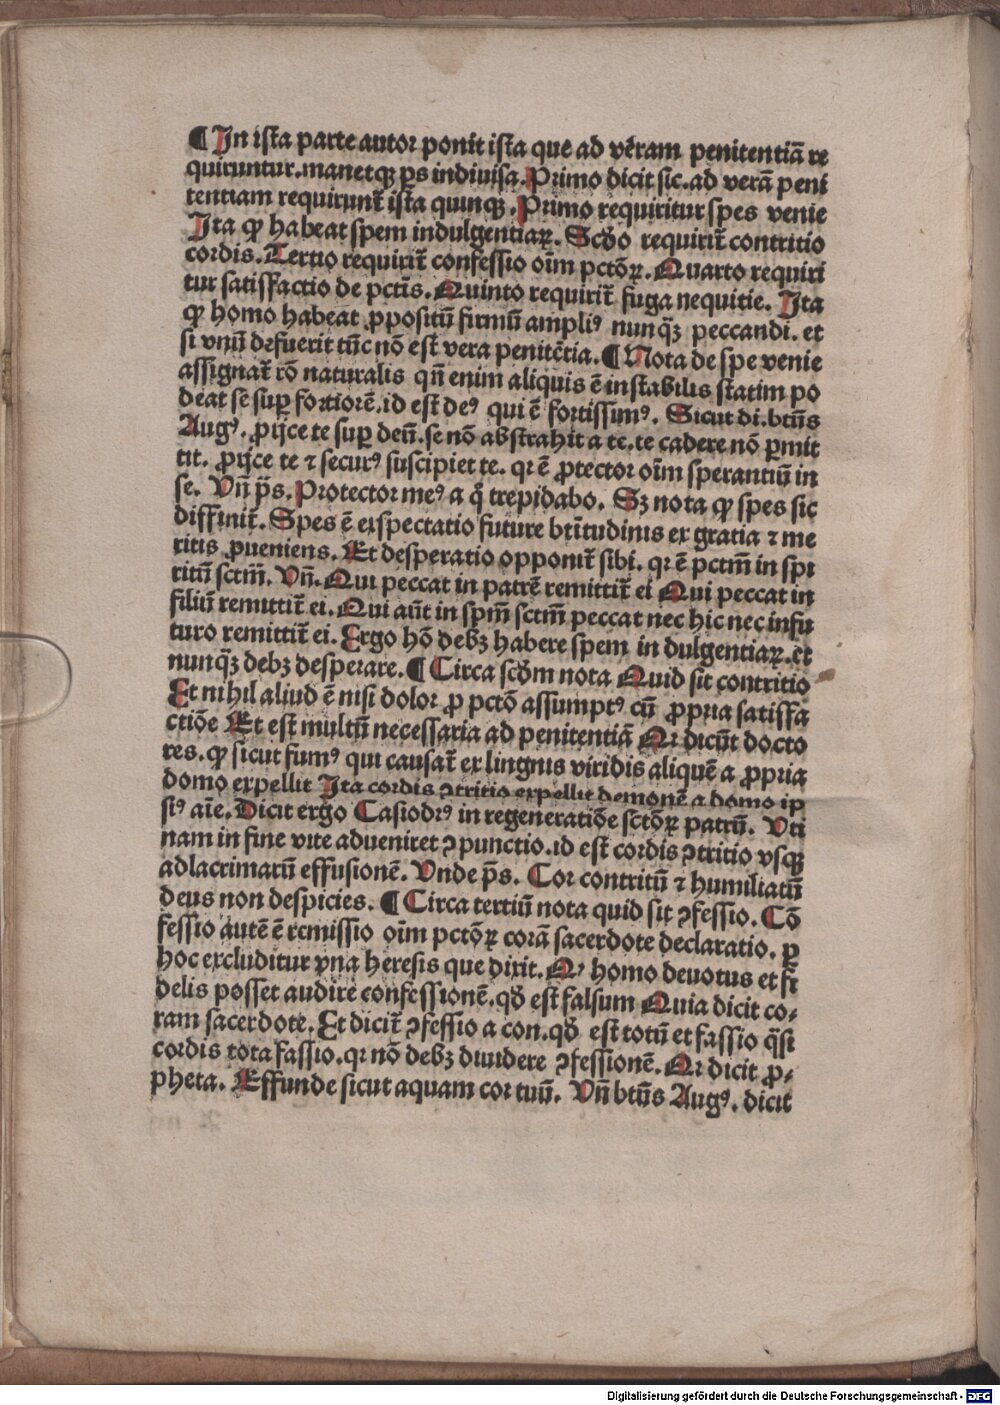 ¶ In ista parte autor ponit ista que ad verам penitentiā re
quiruntur.manetqꝫ ps indiuisa.Primo dicit sic.ad verā peni
tentiam requirunt̄ ista quinqꝫ.Primo requiritur spes venie
Ita ꝙ habeat spem indulgentiaꝝ. Scḋo requirit̄ contritio
cordis.Tertio requirit̄ confessio oīm pctōꝝ.Quarto requiri
tur satisfactio de pctīs.Quinto requirit̄ fuga nequitie. Ita
ꝙ homo habeat ꝓpositū firmū ampliꝰ nunq̄ꝫ peccandi. et
si vnū defuerit tūc nō est vera penitētia.¶ Nota de spe venie
assignat̄ rō naturalis qn̄ enim aliquis ē instabilis statim po
deat se suꝑ fortiorē.id est deꝰ qui ē fortissimꝰ. Sicut di.btūs
Augꝰ. ꝓijce te suꝑ deū.se nō abstrahit a te.te cadere nō ꝑmit
tit. ꝓijce te ⁊ securꝰ suscipiet te. qr ē ꝓtector oīm sperantiū in
se. Vn̄ p̄s. Protector meꝰ a q̇ trepidabo. Sꝫ nota ꝙ spes sic
diffinit̄. Spes ē expectatio future btītudinis ex gratia ⁊ me
ritis ꝓueniens. Et desperatio opponit̄ sibi. qr ē pctm̄ in spi
ritū sctm̄. Vn̄.Qui peccat in patrē remittit̄ ei Qui peccat in
filiū remittit̄ ei.Qui aūt in spm̄ sctm̄ peccat nec hic nec infu
turo remittit̄ ei. Ergo hō debꝫ habere spem in dulgentiaꝝ.et
nunq̄ꝫ debꝫ desperare.¶ Circa scḋm nota Quid sit contritio
Et nihil aliud ē nisi dolor ꝓ pctō assumptꝰ cū ꝓpria satiffa
ctiōe Et est multū necessaria ad penitentiā Qr dicūt docto
res.ꝙ sicut fumꝰ qui causat̄ ex lingnis viridis aliquē a ꝓpria
domo expellit Ita cordis ꝯtritio expellit demonē a domo ip
siꝰ aīe.Dicit ergo Casiodrꝰ in regeneratiōe sctōꝝ patrū. Vti
nam in fine vite adueniret ꝯpunctio.id est cordis ꝯtritio vsqꝫ
adlacrimarū effusionē. Vnde p̄s. Cor contritū ⁊ humiliatū
deus non despicies. ¶ Circa tertiū nota quid sit ꝯfessio. Cō
fessio autē ē remissio oīm pctōꝝ corā sacerdote declaratio. ꝑ
hoc excluditur vna heresis que dixit.Qꝰ homo deuotus et fi
delis posset audire confessionē.qḋ est falsum Quia dicit co-
ram sacerdote.Et dicit̄ ꝯfessio a con.qḋ est totū et fassio q̄si
cordis tota fassio.qr nō debꝫ diuidere ꝯfessionē. Qr dicit ꝓ-
pheta. Effunde sicut aquam cor tuū. Vn̄ btūs Augꝰ. dicit
Digitalisierung gefördert durch die Deutsche Forschungsgemeinschaft - DFG